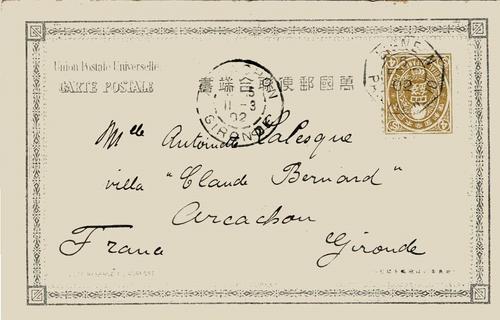 Union Postale Universelle
CARTE POSTALE
書端合便郵國萬
GIRONDE
02
02
Mlle Antoinette Lalesque
villa "Claude Bernard"
Arcachon
France Gironde